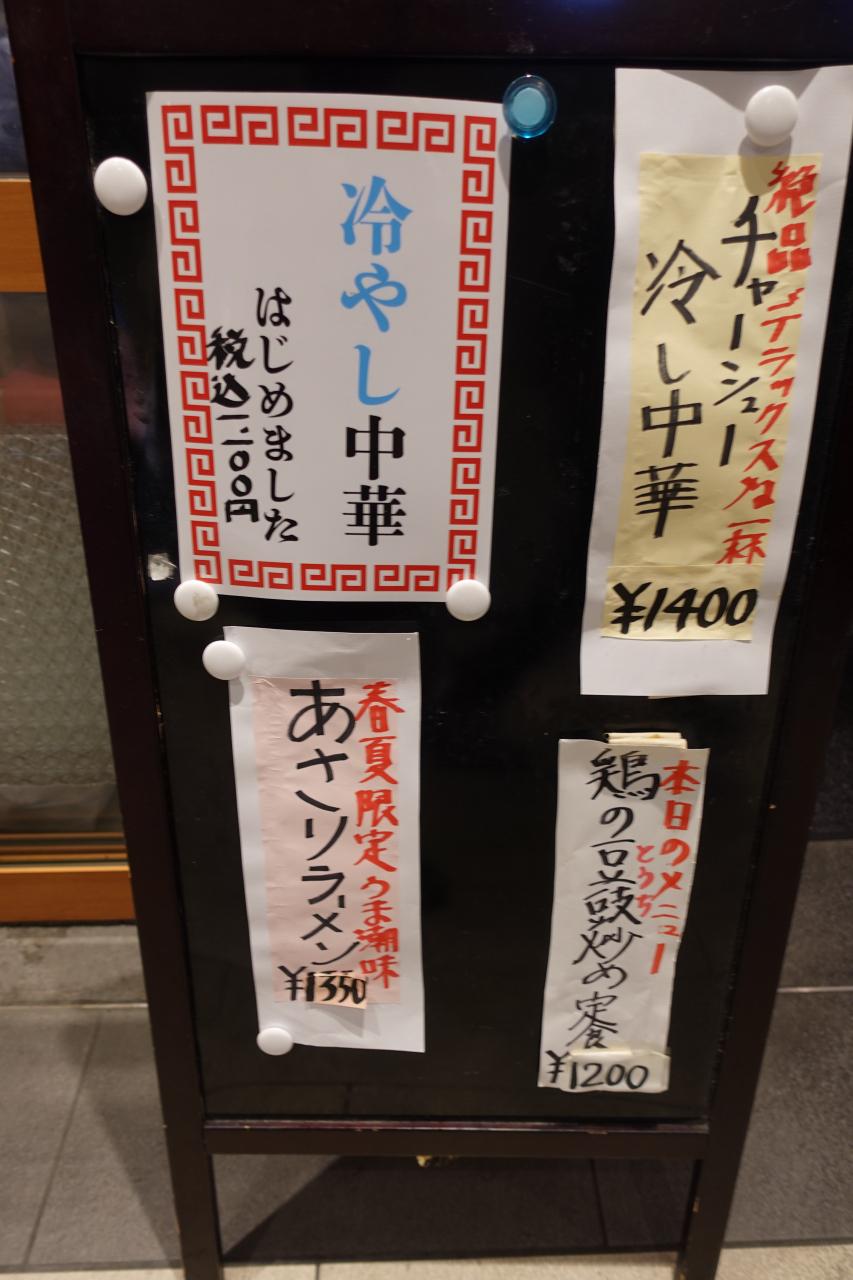 冷やし中華
はじめました
税込
絶品デラックスな一杯
チャーシュー
冷し中華
¥1400
春夏限定うま潮味
あさりラーメン
¥1350
本日のメニュー
とうち
鶏の豆鼓炒め定食
¥1200